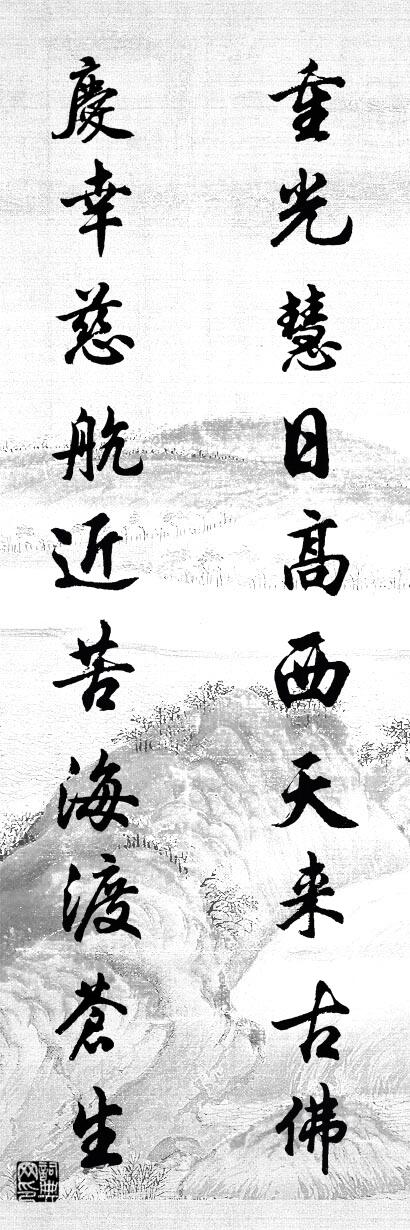 重光慧日高西天来古佛
慶幸慈航近苦海渡蒼生
詞典網印